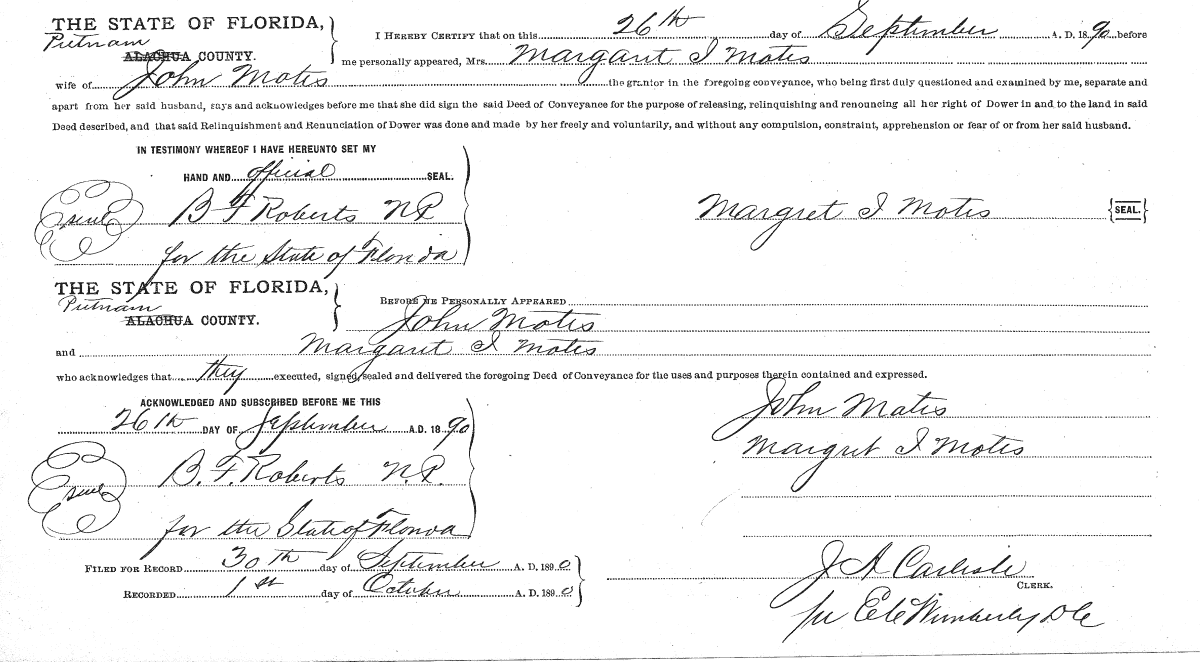 THE STATE OF FLORIDA,
Putnam
ALACHUA COUNTY.
I HEREBY CERTIFY that on this 26th day of September A. D. 1890 before
me personally appeared, Mrs. Margaret I Motes
wife of John Motes the grantor in the foregoing conveyance, who being first duly questioned and examined by me, separate and
apart from her said husband, says and acknowledges before me that she did sign the said Deed of Conveyance for the purpose of releasing, relinquishing and renouncing all her right of Dower in and to the land in said
Deed described, and that said Relinquishment and Renunciation of Dower was done and made by her freely and voluntarily, and without any compulsion, constraint, apprehension or fear of or from her said husband.
IN TESTIMONY WHEREOF I HAVE HEREUNTO SET MY
HAND AND official SEAL.
seal
B F Roberts N P
for the State of Florida
Margret I Motes {SEAL.}
THE STATE OF FLORIDA,
Putnam
ALACHUA COUNTY.
BEFORE ME PERSONALLY APPEARED
John Motes
and Margaret I Motes
who acknowledges that they executed, signed, sealed and delivered the foregoing Deed of Conveyance for the uses and purposes therein contained and expressed.
ACKNOWLEDGED AND SUBSCRIBED BEFORE ME THIS
26th DAY OF September A.D. 1890
seal
B. F. Roberts N.P.
for the State of Florida
John Motes
Margret I Motes
FILED FOR RECORD 30th day of September A. D. 1890
RECORDED 1st day of October A. D. 1890
J A Carlisle
CLERK.
Wimberly D C